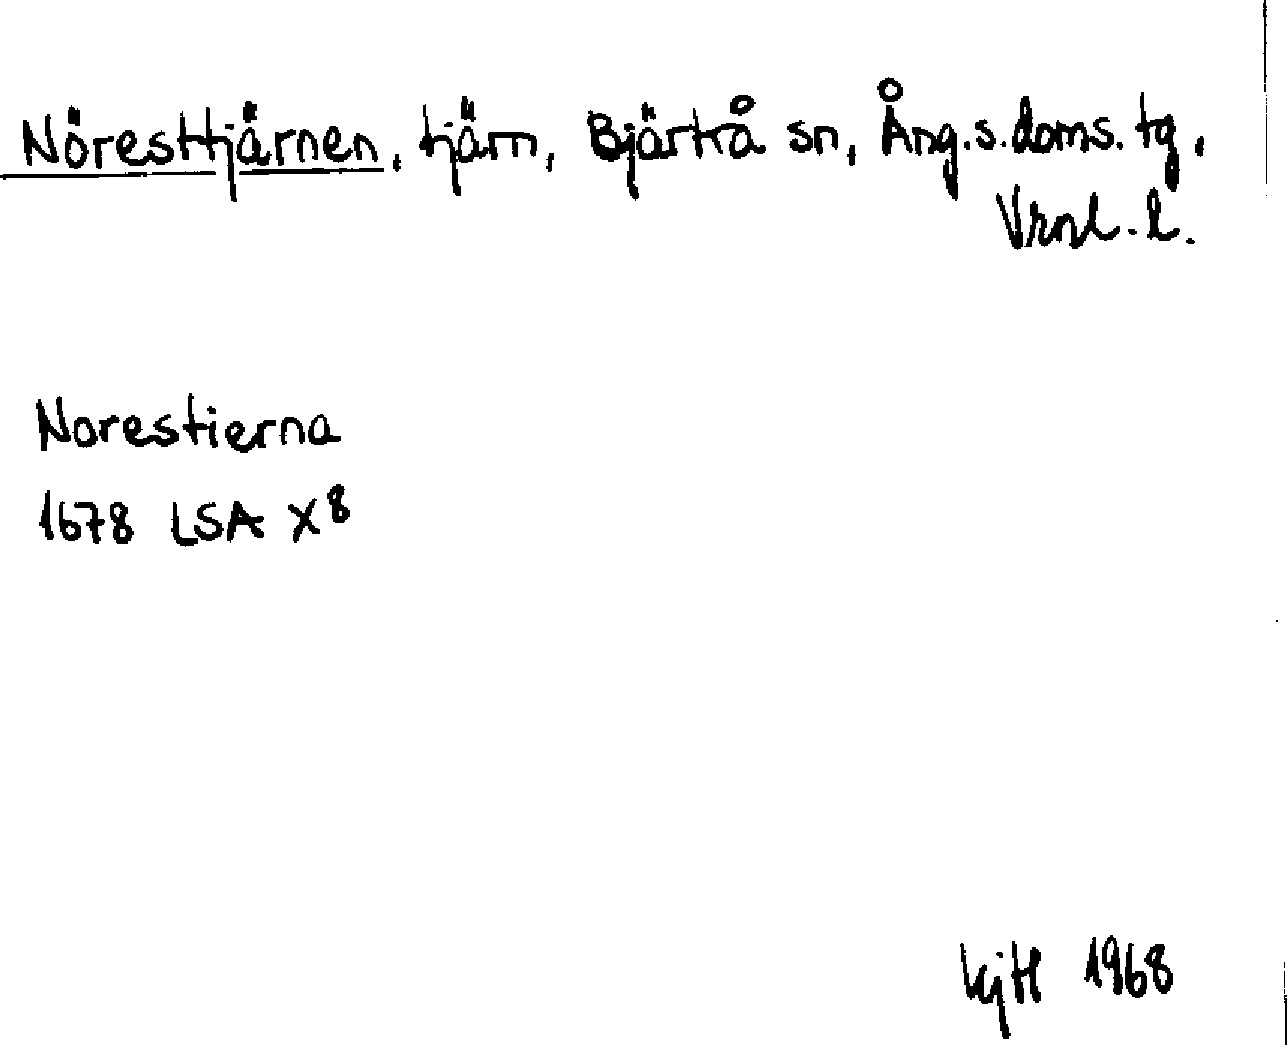 Nöresttjärnen, tjärn, Bjärtrå sn, Ång.s.doms.tg,
Vrnl.l.
Norestierna
1678 LSA X8
KjH 1968